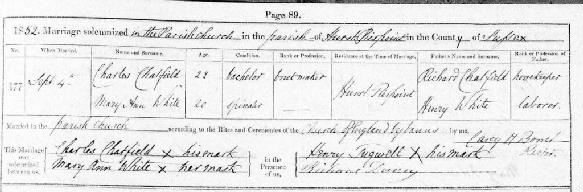 Page 89.
1852. Marriage solemnized in the Parish Church in the parish of Hurst Pierpoint in the County of Sussex
No. When Married. Name and Surname. Age. Condition. Rank or Profession. Residence at the Time of Marriage. Father's Name and Surname. Rank or Profession of Father.
177 Sept 4th Charles Chatfield 22 bachelor Hurst Pierpoint Richard Chatfield
Mary Ann White 20 spinster Henry White laborer
Married in the parish church according to the Rites and Ceremonies of the Church of England by banns by me, Carey H Borrer Rector
This Marriage was solemnized between us, Charles Chatfield X his mark in the Presence of us, Henry Tugwell X his mark
Mary Ann White X her mark Richard